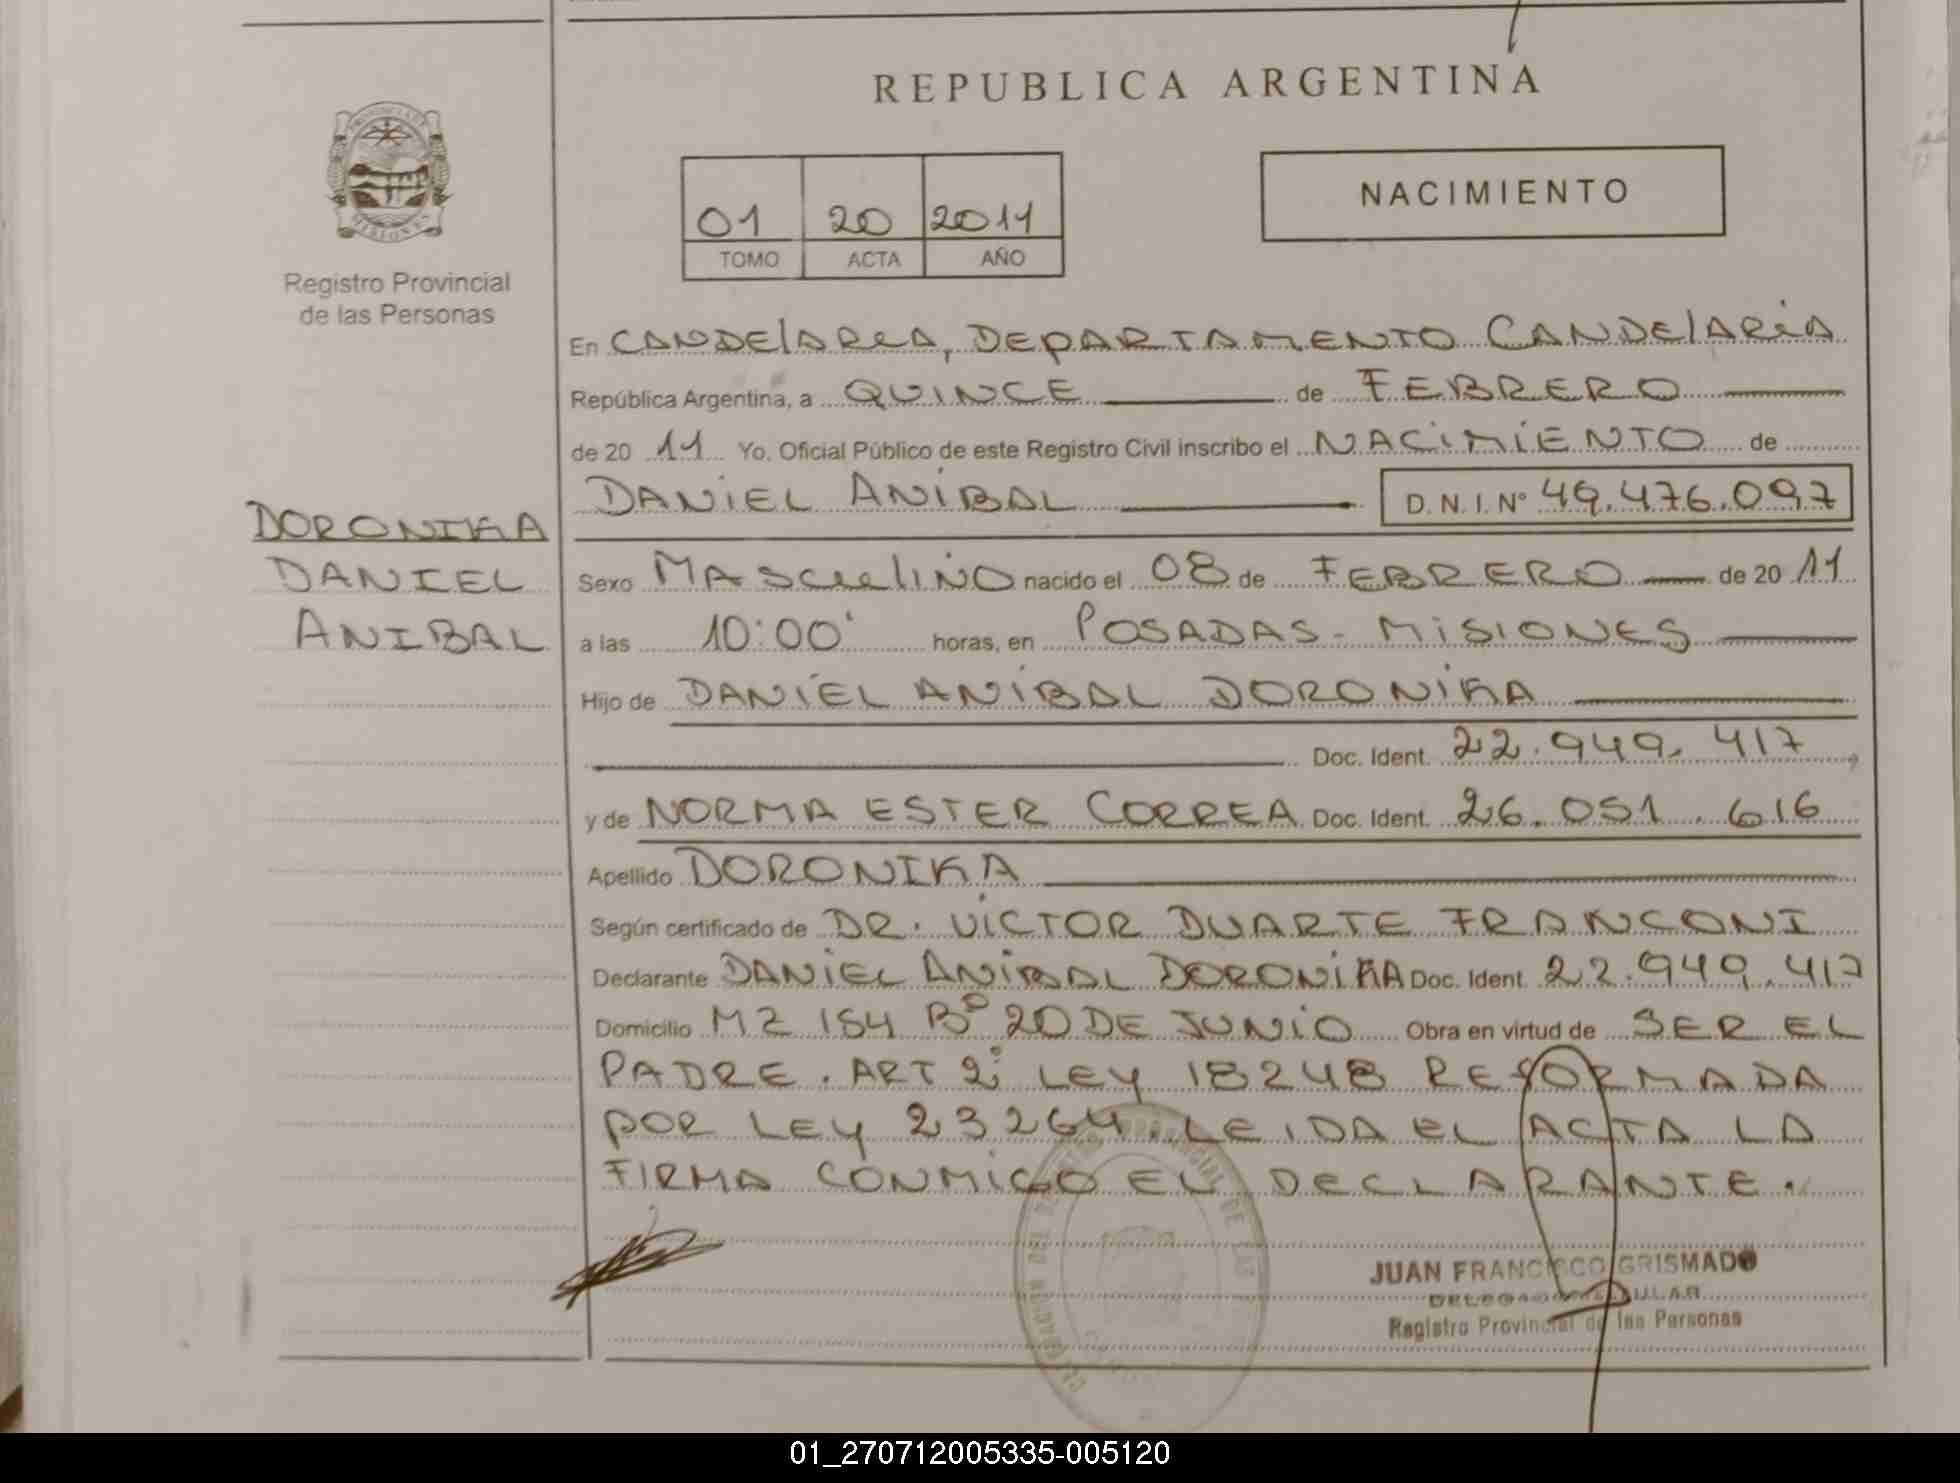 REPUBLICA ARGENTINA
01 20 2011
TOMO ACTA AÑO
NACIMIENTO
Registro Provincial
de las Personas
DORONIKA
DANIEL
ANIBAL
En CANDElARIA, DEPARTAMENTO CANDElARIA
República Argentina, a QUINCE de FEBRERO
de 20 11 Yo. Oficial Público de este Registro Civil inscribo el NACIMIENTO de
DANIEL ANIBAL D.N.I. Nº 49.476.097
Sexo MASCULINO nacido el 08 de FEBRERO de 20 11
a las 10:00' horas, en POSADAS - MISIONES
Hijo de DANIEL ANIBAL DORONIKA
Doc. Ident. 22.949.417
y de NORMA ESTER CORREA Doc. Ident. 26.051.616
Apellido DORONIKA
Según certificado de DR. VICTOR DUARTE FRANCONI
Declarante DANIEL ANIBAL DORONIKA Doc. Ident. 22.949.417
Domicilio MZ 154 Bº 20 DE JUNIO Obra en virtud de SER EL
PADRE. ART 2º LEY 18248 REFORMADA
POR LEY 23264. LEIDA EL ACTA LA
FIRMA CONMIGO EL DECLARANTE.
JUAN FRANCISCO GRISMADO
Registro Provincial de las Personas
01_270712005335-005120